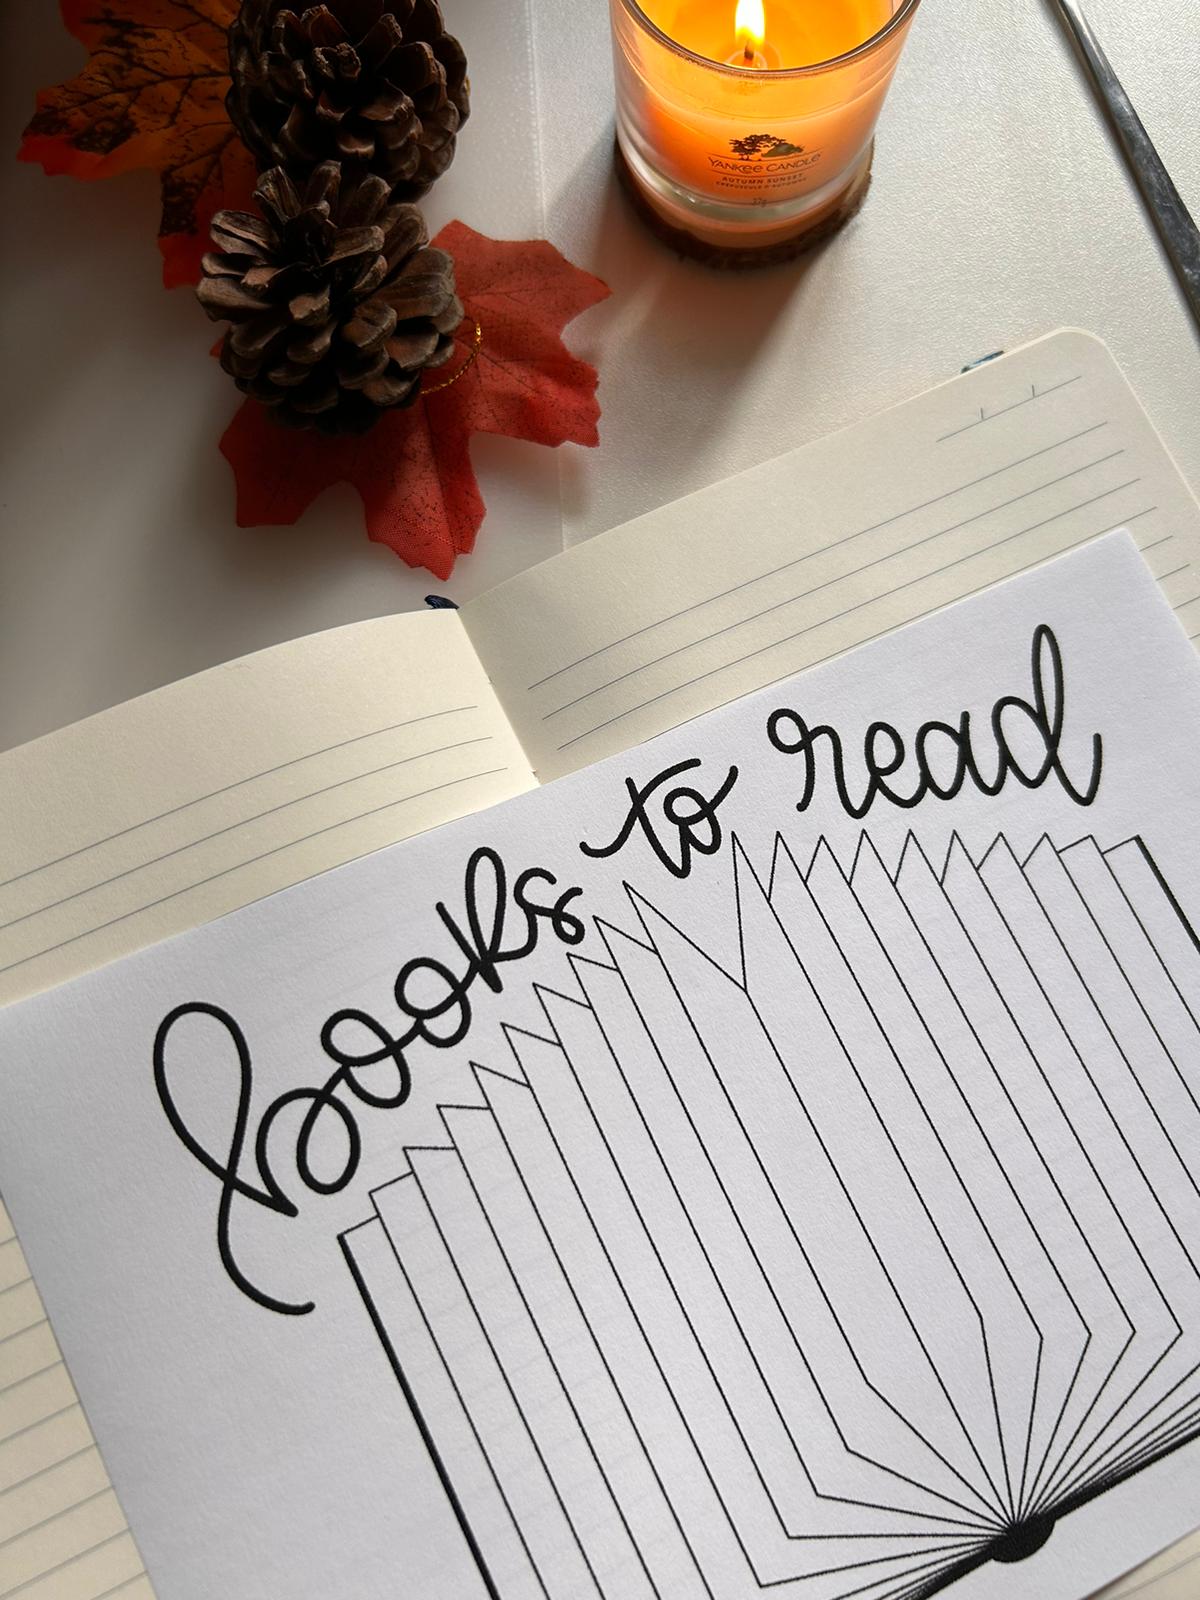 YANKEE CANDLE
AUTUMN SUNSET
CRÉPUSCULE D'AUTOMNE
37g
books to read